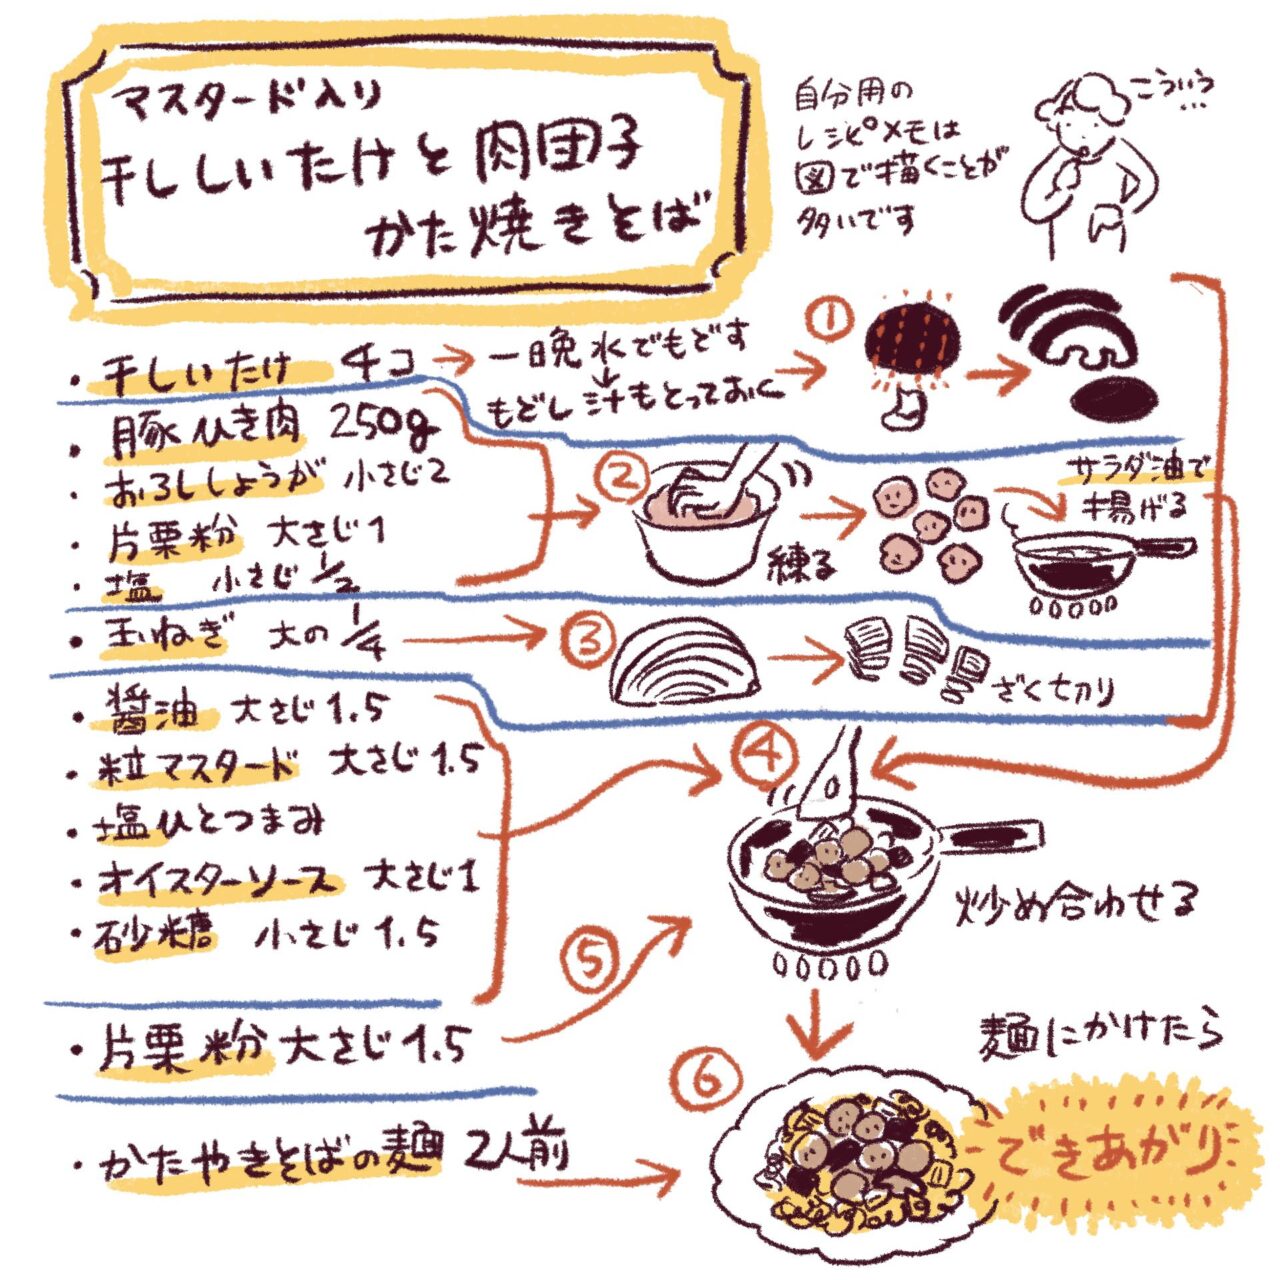 マスタード入り
干ししいたけと肉団子
かた焼きそば
自分用の
レシピメモは
図で描くことが
多いです
こういう…
・干しいたけ 4コ → 一晩水でもどす
もどし汁もとっておく
①
・豚ひき肉 250g
・おろししょうが 小さじ2
・片栗粉 大さじ1
・塩 小さじ1/2
②
練る
サラダ油で
揚げる
・玉ねぎ 大の1/4
③
ざく切り
・醤油 大さじ1.5
・粒マスタード 大さじ1.5
・塩ひとつまみ
・オイスターソース 大さじ1
・砂糖 小さじ1.5
④
炒め合わせる
・片栗粉 大さじ1.5
⑤
・かたやきそばの麺 2人前
⑥
麺にかけたら
できあがり